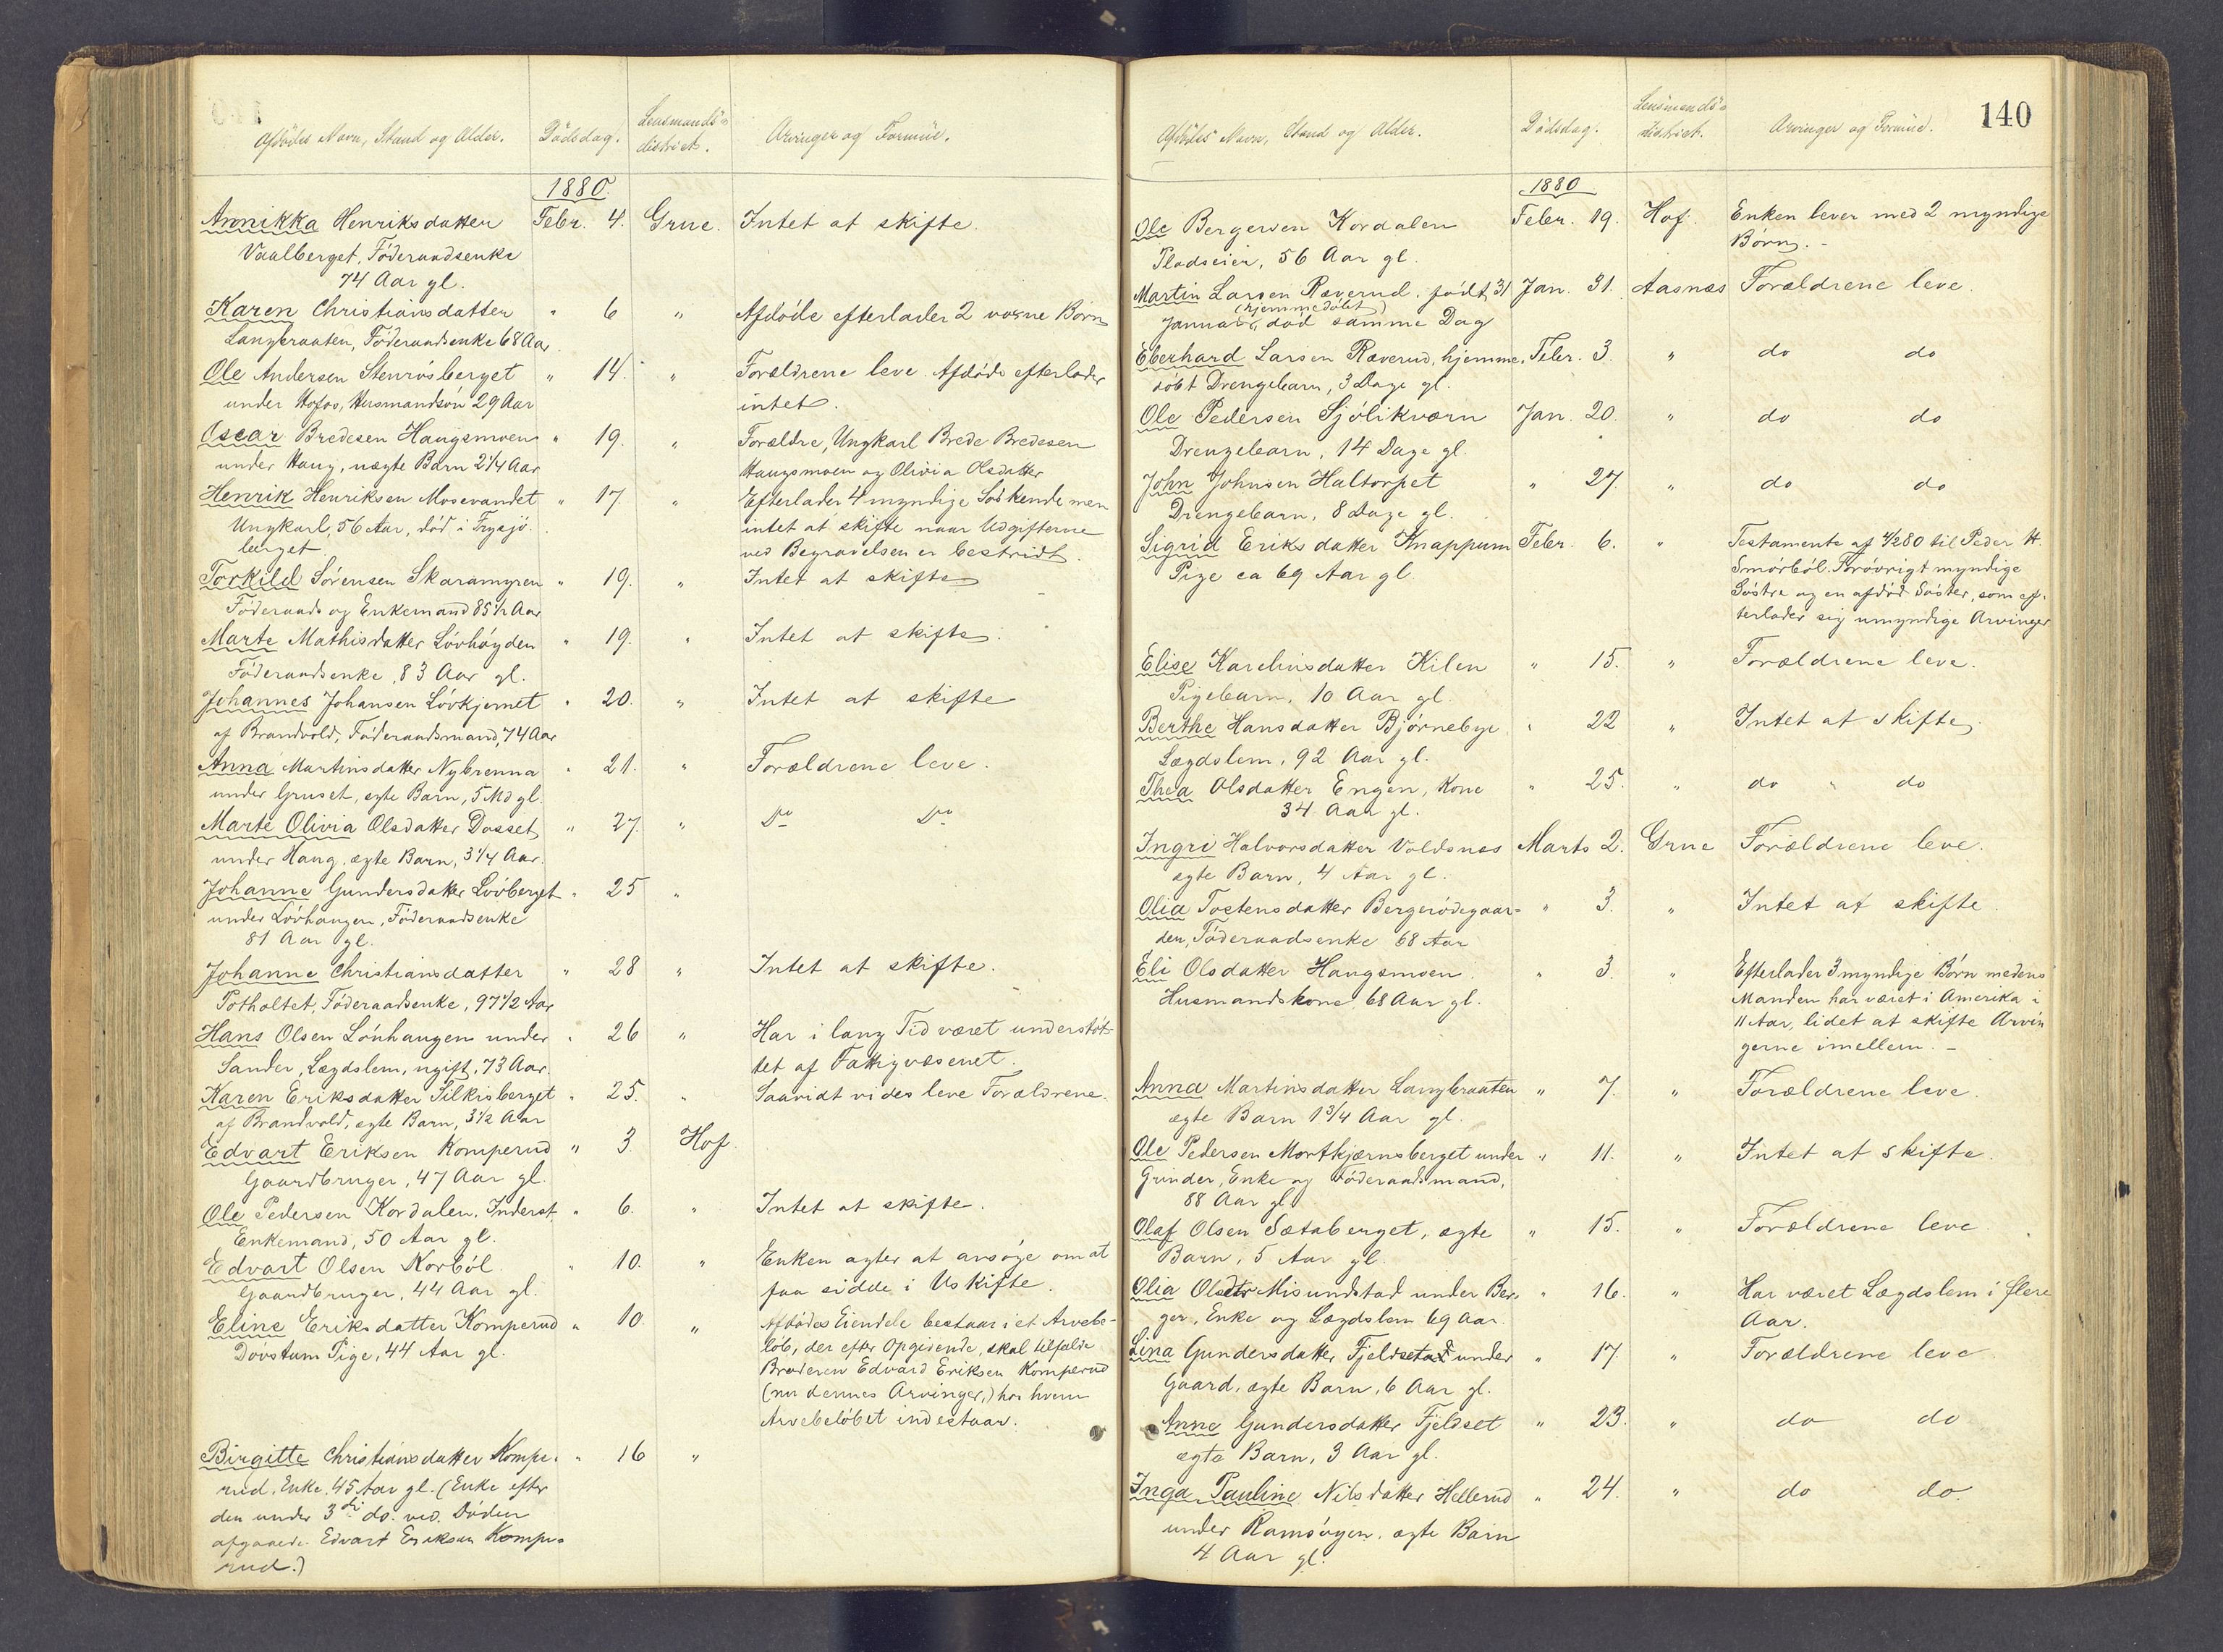 Afdödes Navn, Stand og Alder. Dödsdag. Lensmands-
district. Arvinger og Formue.
1880.
Annikka Henriksdatter Febr. 4. Grue. Intet at skifte.
Vaalberget, Föderaadsenke
74 Aar gl.
Karen Christiansdatter " 6 " Afdöde efterlader 2 voxne Börn
Langbraaten, Föderaadsenke 68 Aar
Ole Andersen Stenrösberget " 14. " Forældrene leve. Afdöde efterlader
under Hofos, Husmandsön 29 Aar intet.
Oscar Bredesen Haugsmoen " 19. " Forældre, Ungkarl Brede Bredesen
under Haug, uægte Barn 2 1/4 Aar Haugsmoen og Olivia Olsdatter
Henrik Henriksen Mosevandet " 17. " Efterlader 4 myndige Södskende men
Ungkarl, 56 Aar, död i Frysjö- intet at skifte naar Udgifterne
berget ved Begravelsen er bestridt.
Torkild Sörensen Skaramyren " 19. " Intet at skifte
Föderaads og Enkemand 85 1/2 Aar
Marte Mathisdatter Lövhöyden " 19. " Intet at skifte.
Föderaadsenke, 83 Aar gl.
Johannes Johansen Lövkjernet " 20. " Intet at skifte
af Brandvold, Föderaadsmand, 74 Aar
Anna Martinsdatter Nybrenna " 21. " Forældrene leve.
under Gruset, ægte Barn, 5 Md gl.
Marte Olivia Olsdatter Dosset " 27. " Do Do
under Haug, ægte Barn, 3 1/4 Aar.
Johanne Gundersdatter Lövberget " 25 "
under Lövhaugen, Föderaadsenke
81 Aar gl.
Johanne Christiansdatter " 28 " Intet at skifte.
Potholtet, Föderaadsenke, 97 1/2 Aar
Hans Olsen Lönhaugen under " 26 " Har i lang Tid været understöt-
Sander, Lægdslem, ugift, 73 Aar. tet af Fattigvæsenet.
Karen Eriksdatter Silkisberget " 25. " Saavidt vides leve Forældrene.
af Brandvold, ægte Barn, 3 1/2 Aar
Edvart Eriksen Komperud " 3. Hof.
Gaardbruger, 47 Aar gl.
Ole Pedersen Kordalen, Inderst " 6. " Intet at skifte.
Enkemand, 50 Aar gl.
Edvart Olsen Norböl " 10. " Enken agter at ansöge om at
Gaardbruger, 44 Aar gl. faa sidde i Uskifte.
Eline Eriksdatter Komperud " 10. " Afdödes Eiendele bestaar i et Arvebe-
Dövstum Pige, 44 Aar gl. löb, der efter Opgivende, skal tilfalde
Broderen Edvard Eriksen Komperud
(nu dennes Arvinger,) hos hvem
Arvebelöbet indestaar.
Birgitte Christiansdatter Kompe- " 16 "
rud, Enke, 45 Aar gl. (Enke efter
den under 3di ds. ved. Döden
afgaaede Edvart Eriksen Kompe-
rud.)
140
Afdödes Navn, Stand og Alder. Dödsdag. Lensmands-
district. Arvinger og Formue.
1880
Ole Bergersen Kordalen Febr. 19. Hof. Enken lever med 2 myndige
Pladseier, 56 Aar gl. Börn. -
Martin Larsen Raverud, födt 31 Jan. 31. Aasnæs Forældrene leve.
(hjemmedöbt)
Januar, död samme Dag
Eberhard Larsen Raverud, hjemme- Febr. 3. " do do
döbt Drengebarn, 3 Dage gl.
Ole Pedersen Sjölikværn Jan. 20. " do do
Drengebarn, 14 Dage gl.
John Johnsen Haltorpet " 27. " do do
Drengebarn, 8 Dage gl.
Sigrid Eriksdatter Knappum Febr. 6. " Testamente af 4/2 80 til Peder H.
Pige ca 69 Aar gl. Smörböl. Forövrigt myndige
Söstre og en afdöd Söster, som ef-
terlader sig umyndige Arvinger
Elise Karelinsdatter Kilen " 15. " Forældrene leve.
Pigebarn, 10 Aar gl.
Berthe Hansdatter Björnebye " 22 " Intet at skifte
Lægdslem, 92 Aar gl.
Thea Olsdatter Engen, Kone " 25. " do " do
34 Aar gl.
Ingri Halvorsdatter Voldsnæs Marts 2. Grue Forældrene leve.
ægte Barn, 4 Aar gl.
Olia Tostensdatter Bergerödegaar- " 3. " Intet at skifte.
den, Föderaadsenke 68 Aar
Eli Olsdatter Haugsmoen " 3. " Efterlader 3 myndige Börn medens
Husmandskone 68 Aar gl. Manden har været i Amerika i
11 Aar, lidet at skifte Arvin
gerne imellem. -
Anna Martinsdatter Langbraaten " 7. " Forældrene leve.
ægte Barn 1 3/4 Aar gl.
Ole Pedersen Mortkjærnsberget under " 11. " Intet at skifte.
Grinder, Enke og Föderaadsmand,
88 Aar gl.
Olaf Olsen Sætaberget, ægte " 15. " Forældrene leve
Barn, 5 Aar gl.
Olia Olsdtr Misundstad under Ber- " 16. " Har været Lægdslem i flere
ger, Enke og Lægdslem 69 Aar. Aar.
Lina Gundersdatter Fjeldsetad under " 17. " Forældrene leve
Gaard, ægte Barn, 6 Aar gl.
Anne Gundersdatter Fjeldset " 23. " do do
ægte Barn, 3 Aar gl.
Inga Pauline Nilsdatter Hellerud " 24. " do do.
under Ramsöyen, ægte Barn
4 Aar gl.